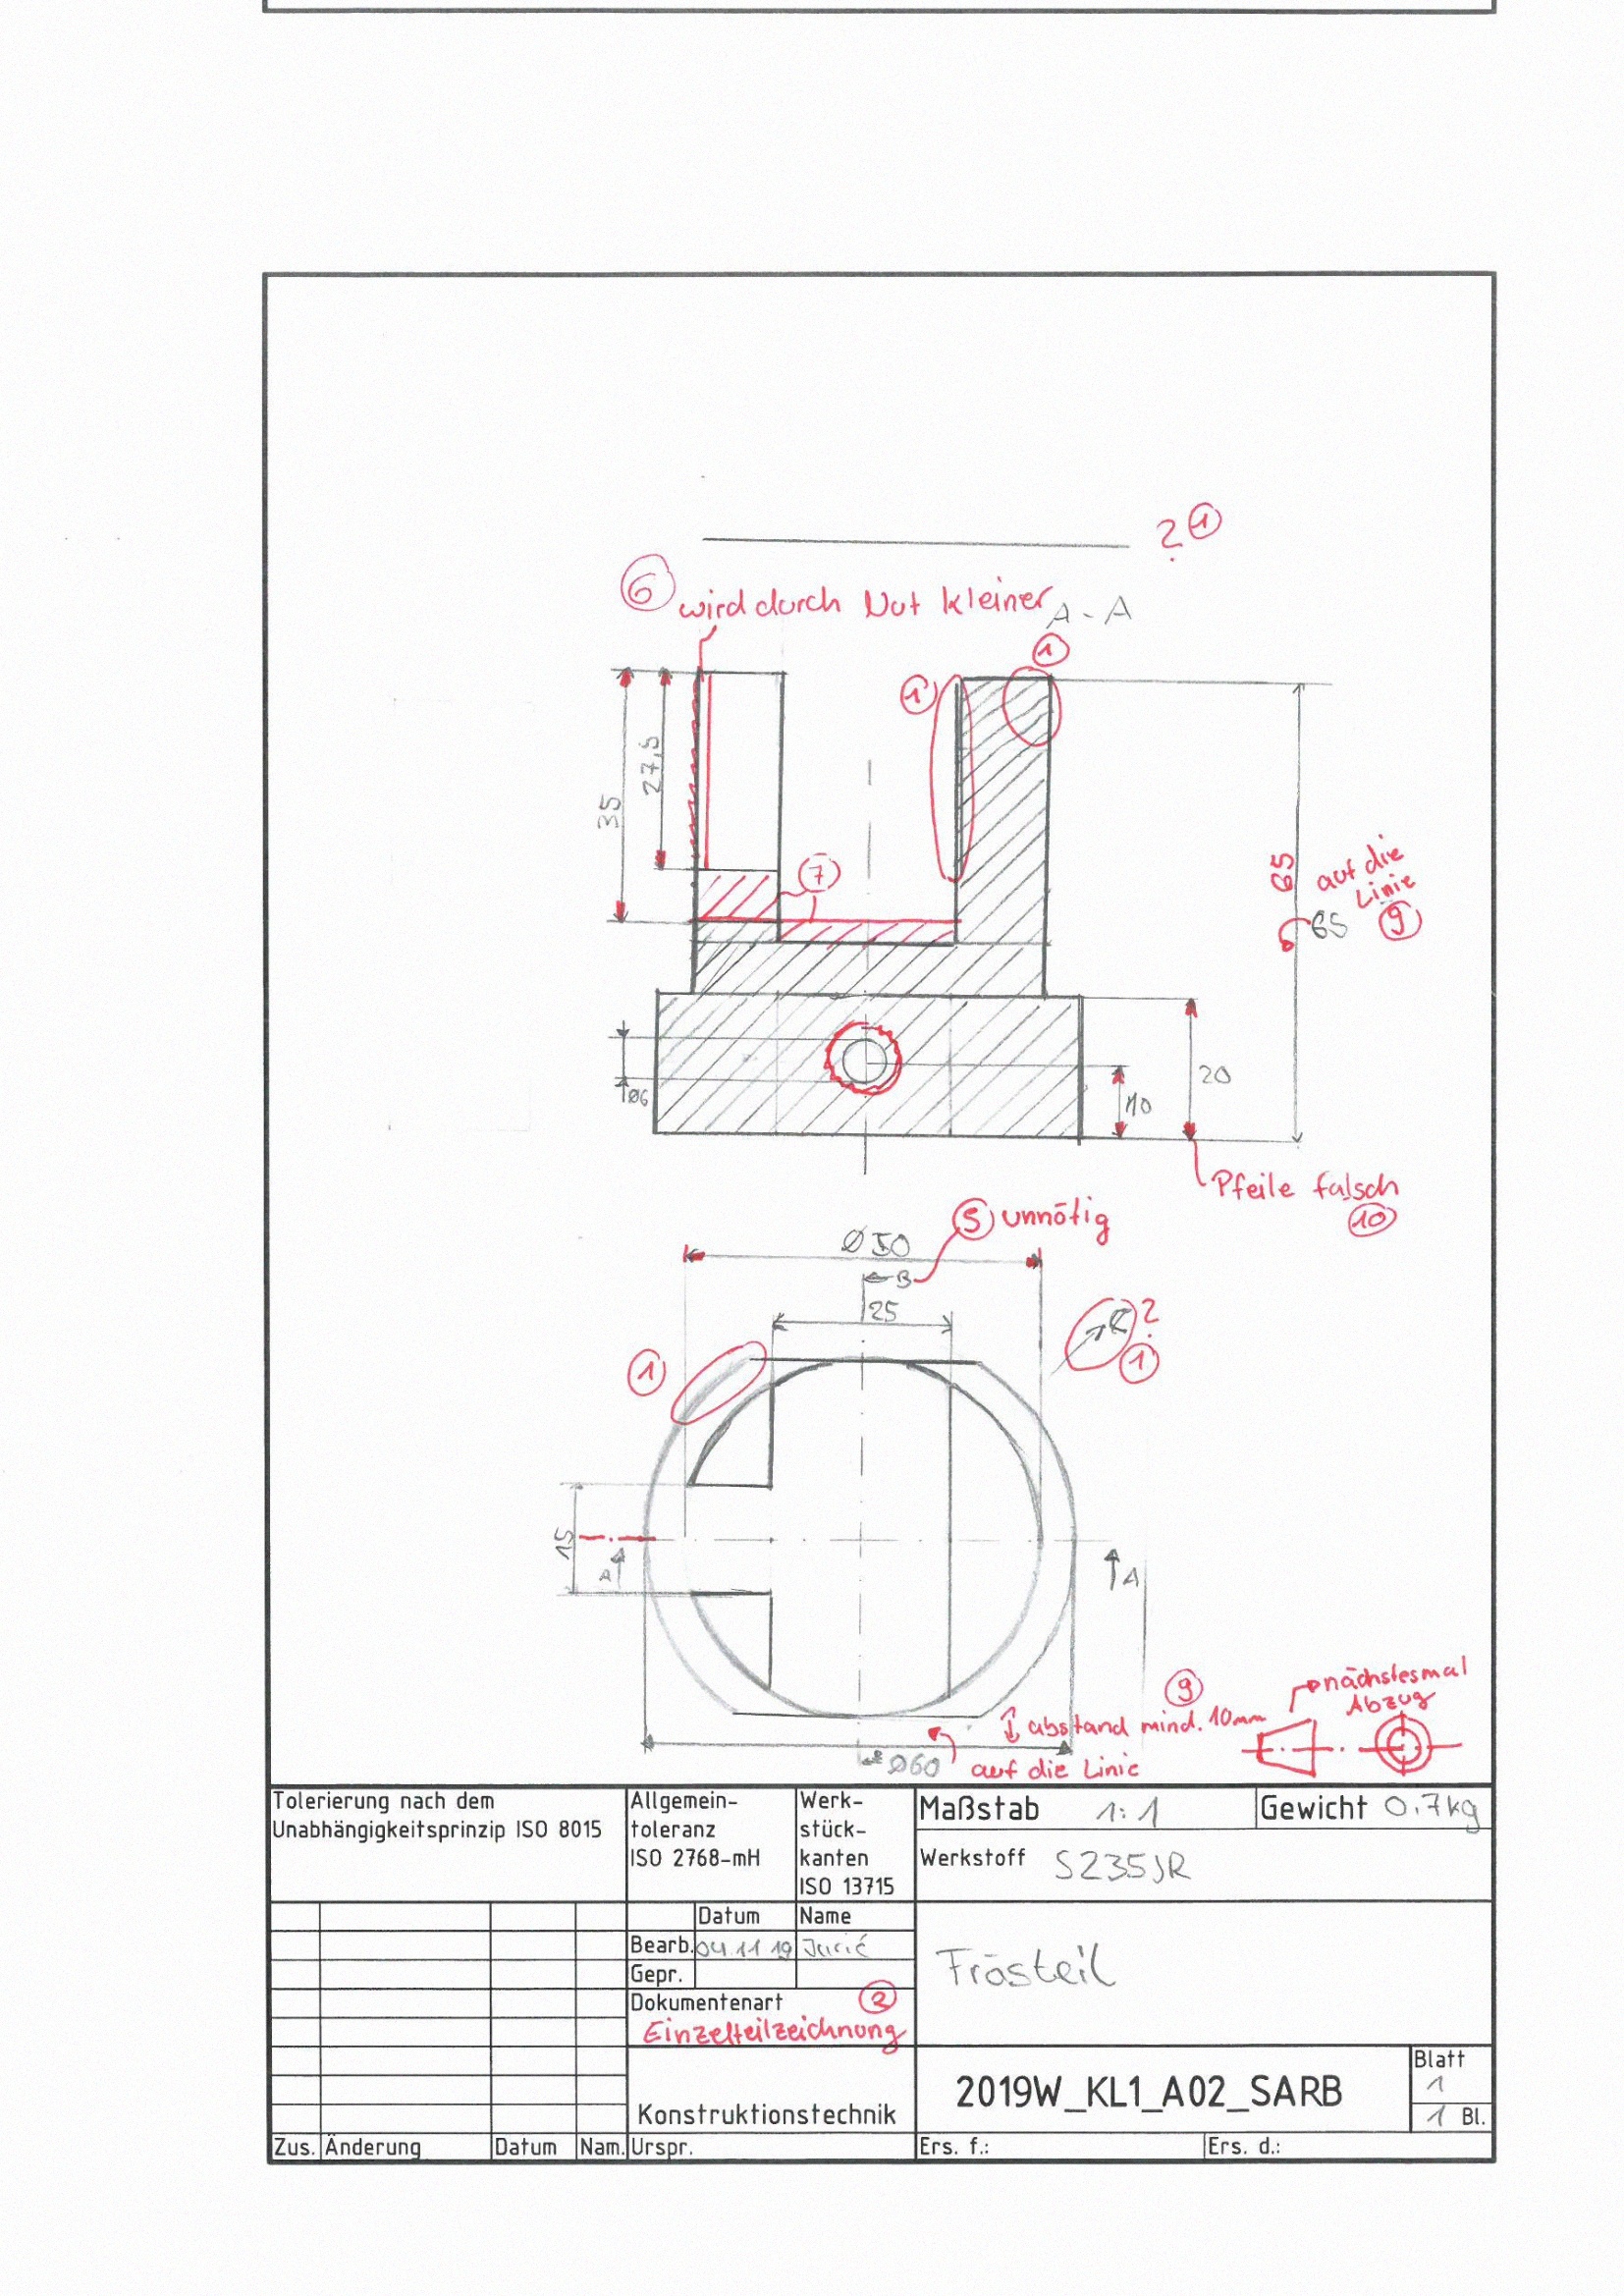 ? 1
6 wird durch Nut kleiner
A - A
1
1
27,5
35
7
65
auf die
Linie
65
9
20
Ø6
10
Pfeile falsch
10
5 unnötig
Ø 50
B
25
R ?
1
1
15
A
A
9
nächstesmal
Abzug
abstand mind. 10mm
Ø60
auf die Linie
Tolerierung nach dem
Unabhängigkeitsprinzip ISO 8015
Allgemein-
toleranz
ISO 2768-mH
Werk-
stück-
kanten
ISO 13715
Maßstab 1:1
Gewicht 0.7kg
Werkstoff S235JR
Datum Name
Bearb. 04.11.19 Jurić
Gepr.
Frästeil
Dokumentenart 2
Einzelteilzeichnung
Konstruktionstechnik
2019W_KL1_A02_SARB
Blatt
1
1 Bl.
Zus. Änderung Datum Nam. Urspr. Ers. f.: Ers. d.: